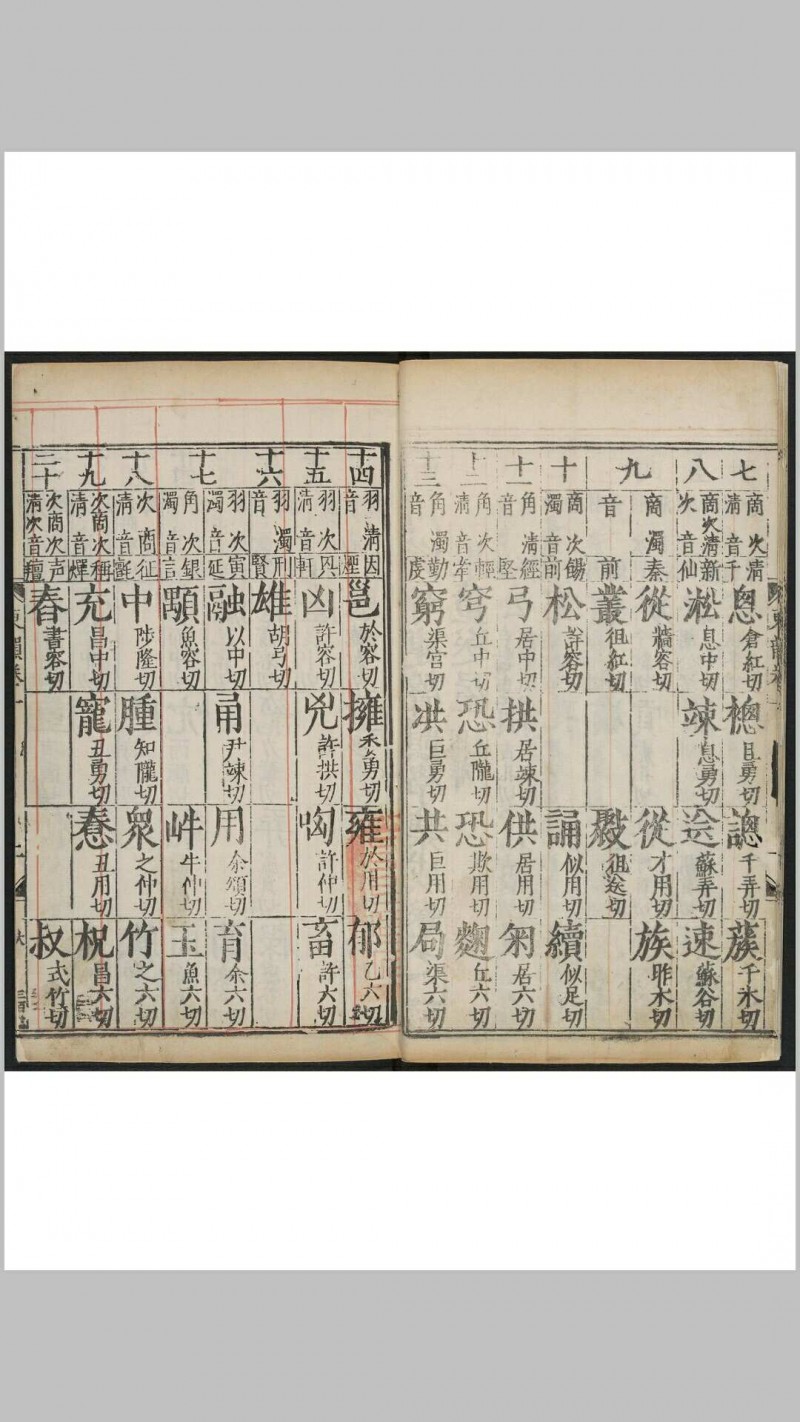 七 商次清音 清千 悤倉紅切 㹅且勇切 謥千弄切 蔟千木切
八 商次清次音 新仙 淞息中切 竦息勇切 送蘇弄切 速蘇谷切
九 商濁音 秦前 從牆容切 從才用切 族昨木切
叢徂紅切 徂送切
十 商次濁音 餳前 松詳容切 誦似用切 續似足切
十一 角清音 經堅 弓居中切 拱居竦切 供居用切 匊居六切
十二 角次清音 輕牽 穹丘中切 恐丘隴切 恐欺用切 麴丘六切
十三 角濁音 勤虔 窮渠宮切 洪巨勇切 共巨用切 局渠六切
十四 羽清音 因煙 邕於容切 擁委勇切 雍於用切 郁乙六切
十五 羽次清音 軒 凶許容切 兇許拱切 哅許仲切 畜許六切
十六 羽濁音 刑賢 雄胡弓切
十七 羽次濁音 寅延 融以中切 甬尹竦切 用余頌切 育余六切
角次濁音 銀言 顒魚容切 岼牛仲切 玉魚六切
十八 次商清音 征氈 中陟隆切 腫知隴切 眾之仲切 竹之六切
十九 次商次清音 稱燀 充昌中切 寵丑勇切 惷丑用切 柷昌六切
二十 次商次清次音 声羶 舂書容切 叔式竹切